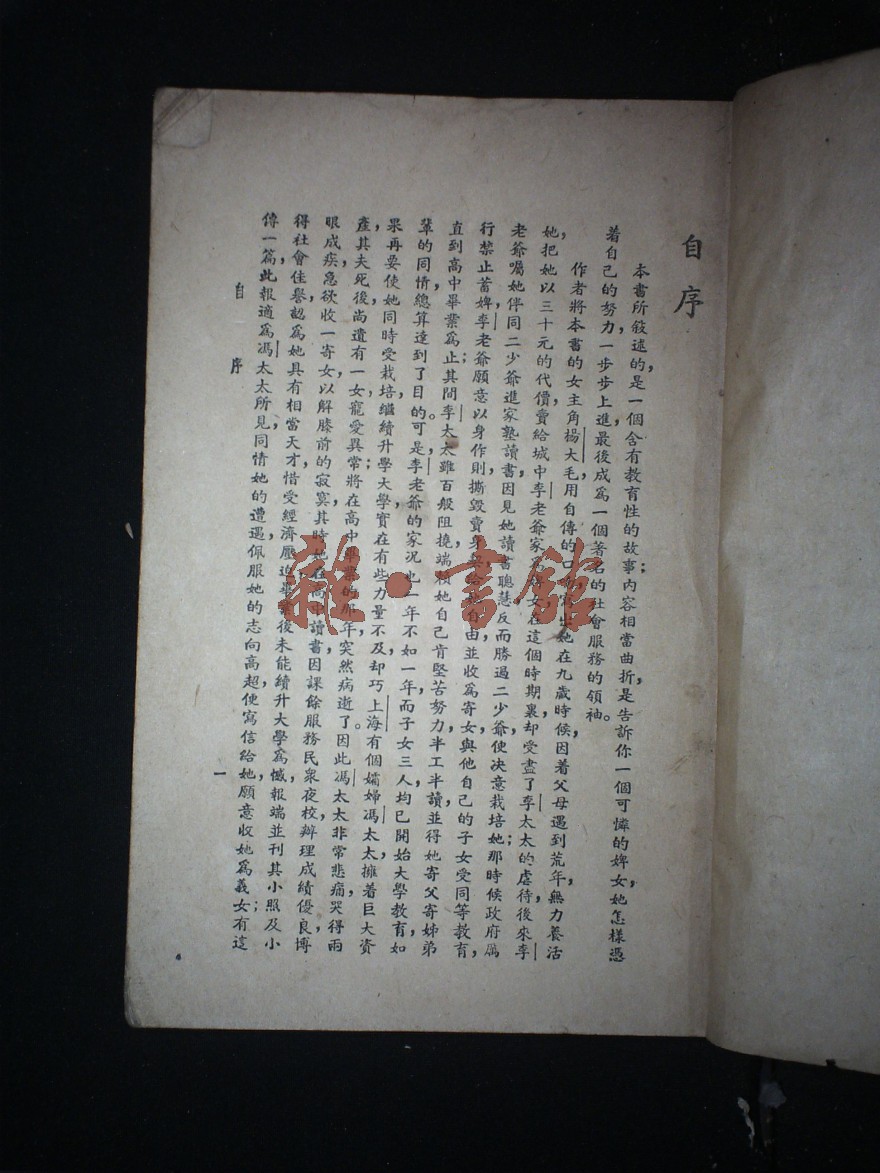 自序
本書所敍述的，是一個含有教育性的故事；內容相當曲折，是告訴你一個可憐的婢女，她怎樣憑
着自己的努力，一步步上進，最後成爲一個著名的社會服務的領袖。
作者將本書的女主角楊大毛，用自傳的口寫出她在九歲時候，因着父母遇到荒年，無力養活
她，把她以三十元的代價，賣給城中李老爺家爲婢女，在這個時期裏，却受盡了李太太的虐待，後來李
老爺囑她伴同二少爺進家塾讀書，因見她讀書聰慧，反而勝過二少爺，便决意栽培她；那時候政府厲
行禁止蓄婢，李老爺願意以身作則，撕毀賣身自由，並收爲寄女，與他自己的子女受同等教育，
直到高中畢業爲止；其間李太太雖百般阻撓，端賴她自己肯堅苦努力，半工半讀，並得她寄父寄姊弟
輩的同情，總算達到了目的。可是，李老爺的家況也一年不如一年，而子女三人，均已開始大學教育，如
果再要使她同時受栽培，繼續升學大學，實在有些力量不及，却巧上海有個孀婦馮太太，擁着巨大資
產，其夫死後，尚遺有一女，寵愛異常；將在高中畢業的那年，突然病逝了。因此，馮太太非常悲痛，哭得兩
眼成疾，急欲收一寄女，以解膝前的寂寞，其時她在高中讀書，因課餘服務民衆夜校，辦理成績優良，博
得社會佳譽，認爲她具有相當天才，惜受經濟壓迫，畢業後未能續升大學爲憾，報端並刊其小照及小
傳一篇，此報適爲馮太太所見，同情她的遭遇，佩服她的志向高超，便寫信給她，願意收她爲義女；有這
自序
一
雜·書館